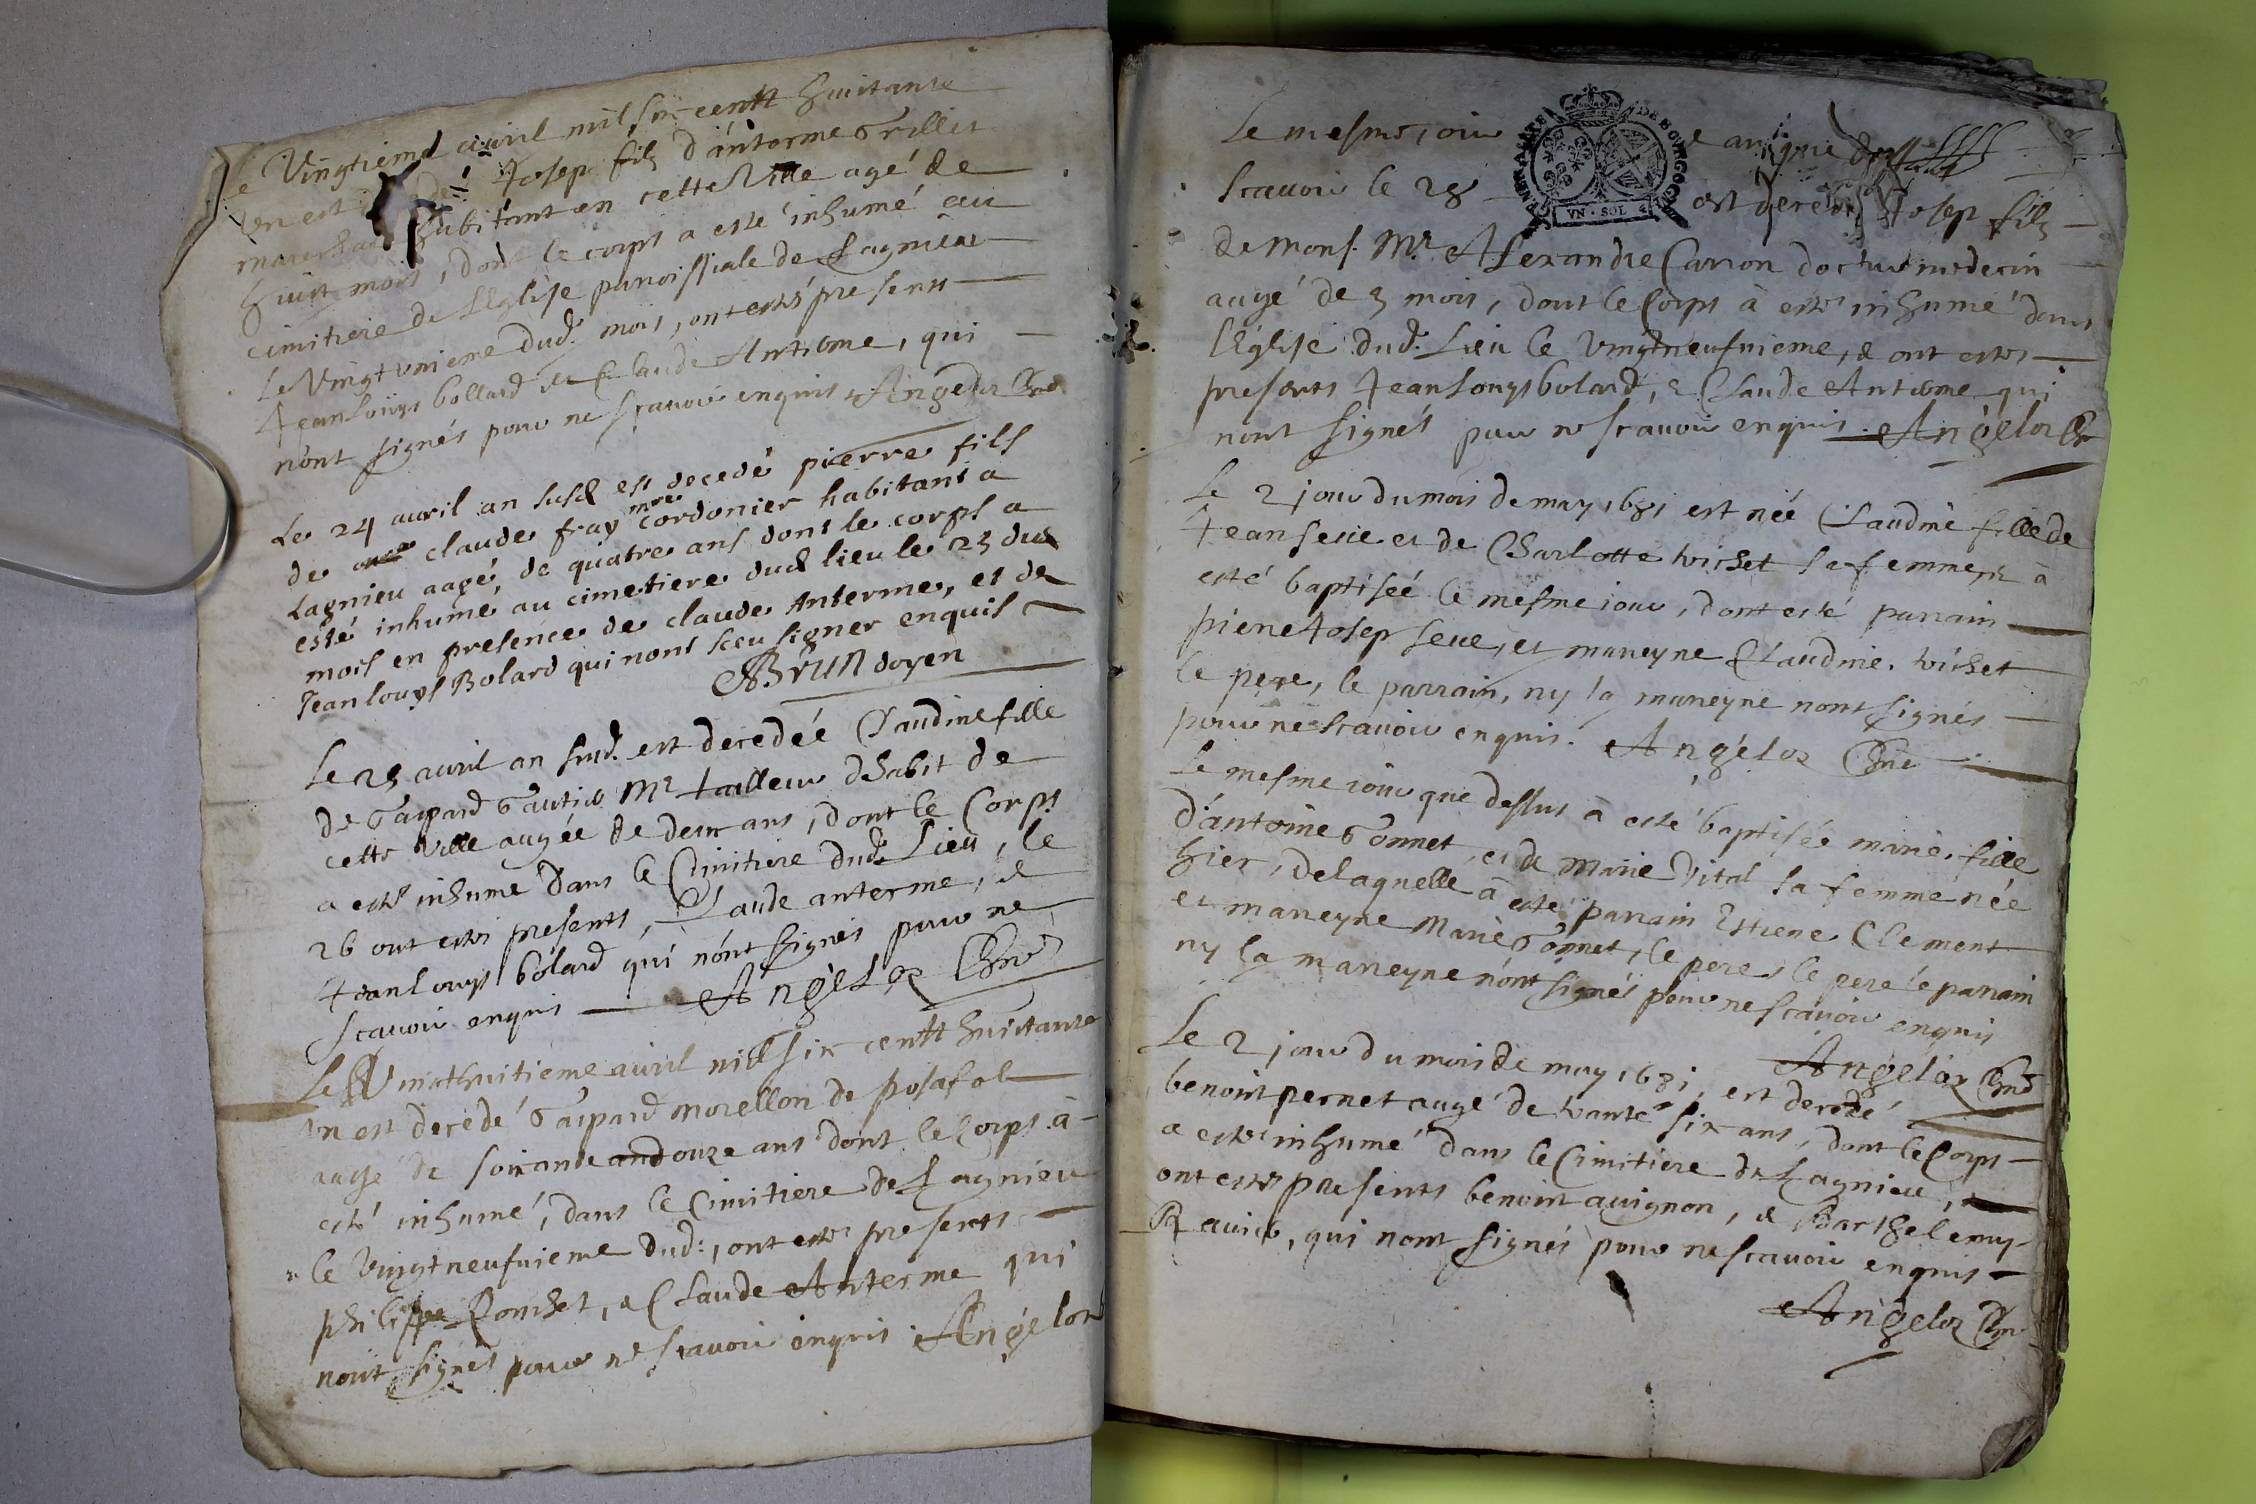 Le Vingtieme avril mil six centt huictante
un est Josep filz d'anterme Grillet
marchand habitant en cette Ville agé de
huict mois, dont le corps a esté inhumé au
cimitiere de L'Eglise paroissiale de Lagnieu
Le Vingtunieme dud. mois, ont estés presents
Jean Louys bollard et Claude Antisme, qui
n'ont signés pour ne scavoir enquis Angelot
Le 24 avril an susd est decedé pierre fils
de claude fray mre cordonier habitant a
Lagnieu aagé de quatre ans dont le corps a
esté inhumé au cimetiere dud lieu le 25 dud
mois en presence de claude Anterme, et de
Jean louys Bolard qui nont sceu signer enquis
BRUN doyen
Le 25 avril an susd. est decedée Claudine fille
de Gaspard Gautier Mr tailleur d'habit de
cette Ville augée de deux ans, dont le Corps
a esté inhumé dans le Cimitiere dud. Lieu, le
26 ont estés presents, Claude anterme, &
Jean Louys bolard qui n'ont signés pour ne
scavoir enquis Angelot
Le Vinthuitieme avril mil six centt huictante
un est decedé Gaspard Morellon de posafol
augé de soixante and ouze ans dont le Corps à
esté inhumé, dans le Cimitiere de Lagnieu
le Vingtneufuieme dud:, ont estés presents
philippe Ponchet, & Claude Anterme qui
n'ont signés pour ne scavoir enquis. Angelot
Le mesme, jour
GENERALITE DE BOURGOGNE
VN · SOL
Scavoir le 28 est decedé Josep filz
de Mons. Mr. Alexandre Carron docteur medecin
augé de 5 mois, dont le Corps à esté inhumé dans
l'Eglise dud. Lieu le Vingtneufuieme, & ont estés
presents Jean Louys bolard, & Claude Antisme qui
n'ont signés pour ne scavoir enquis. Angelot
Le 2 jour du mois de may 1681 est née Claudine fille de
Jean seue et de Charlotte trichet sa femme à
esté baptiséé le mesme jour, dont esté parrain
pierre Josep seue, et mareyne Claudine trichet
le pere, le parrain, ny la mareyne n'ont signés
pour ne scavoir enquis. Angelot
Le mesme jour que dessus à esté baptisée marie, fille
d'antoine Gonnet, et de Marie Vital sa femme née
hier, de laquelle à esté parrain Estiene Clement
et mareyne Marie Gonnet, le pere, le pere le parrain
ny la mareyne n'ont signés pour ne scavoir enquis
Angelot
Le 2 jour du mois de may 1681, est decedé
benoit pernet augé de trante six ans, dont le Corps
a esté inhumé dans le Cimitiere de Lagnieu,
ont estés presents benoit avignon, & Barthelemy
Ravier, qui n'ont signés pour ne scavoir enquis
Angelot